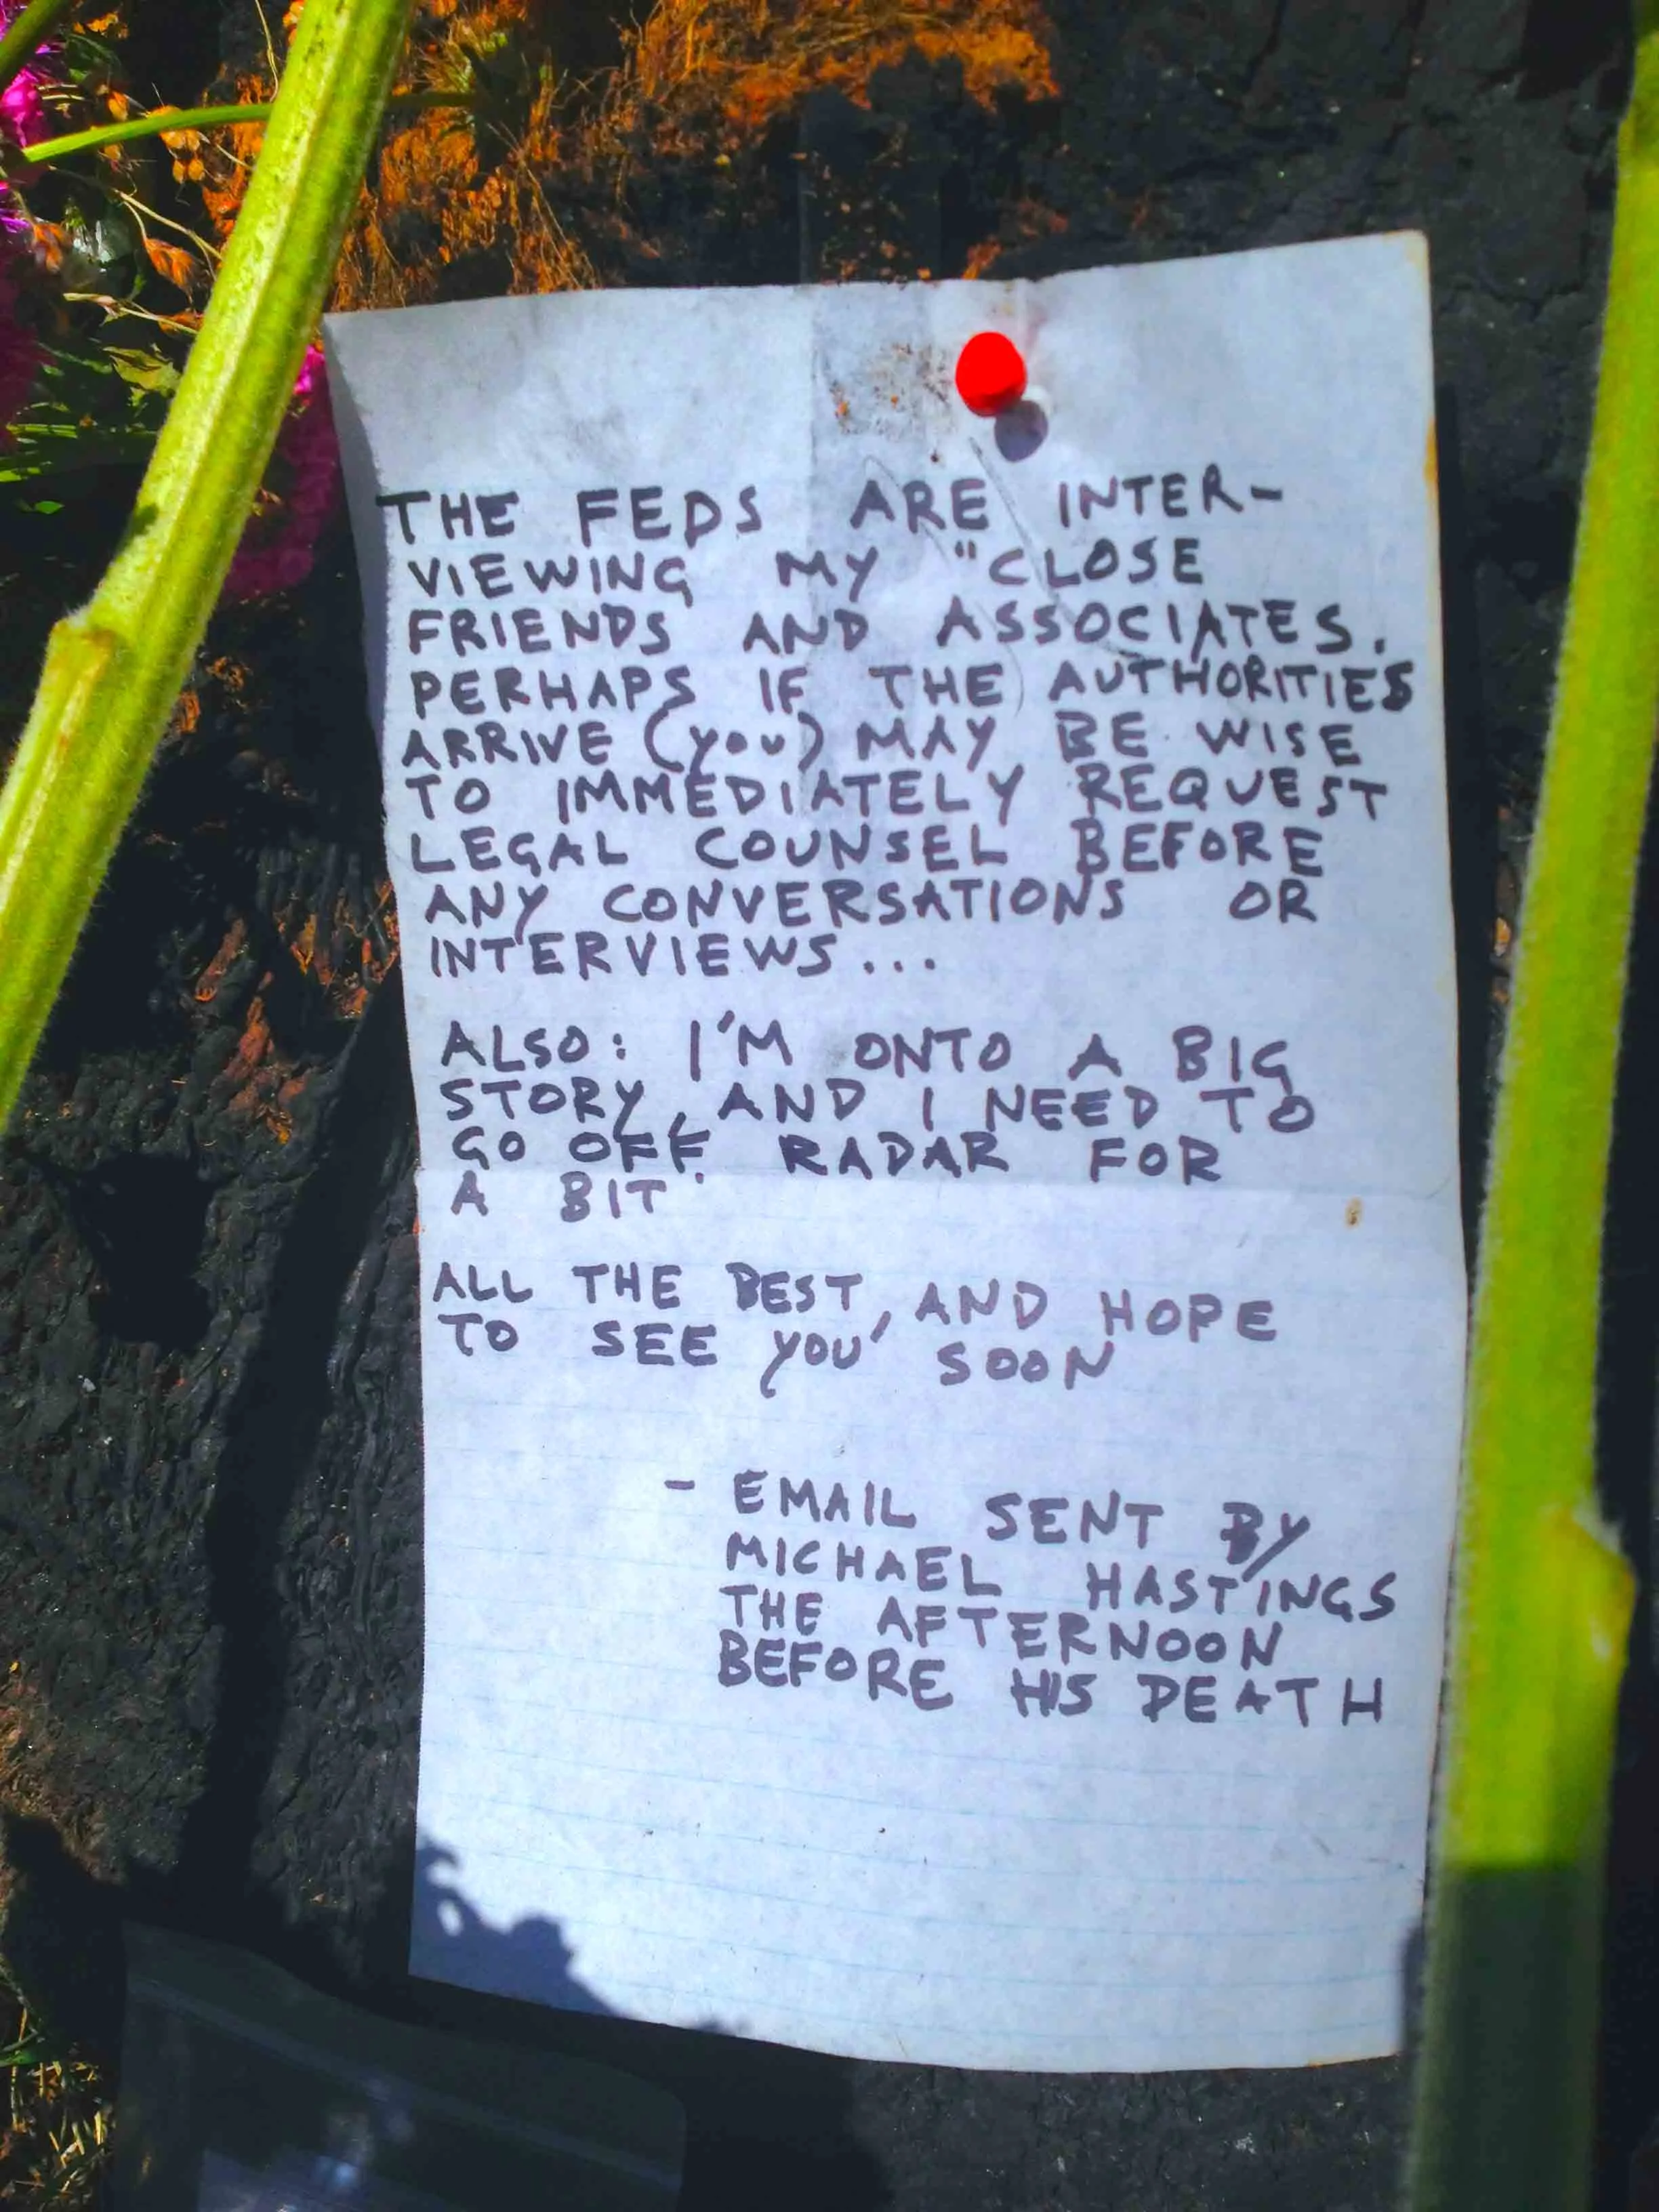 THE FEDS ARE INTER-
VIEWING MY "CLOSE
FRIENDS AND ASSOCIATES.
PERHAPS IF THE AUTHORITIES
ARRIVE (you) MAY BE WISE
TO IMMEDIATELY REQUEST
LEGAL COUNSEL BEFORE
ANY CONVERSATIONS OR
INTERVIEWS...
ALSO: I'M ONTO A BIG
STORY, AND I NEED TO
GO OFF RADAR FOR
A BIT.
ALL THE BEST, AND HOPE
TO SEE YOU SOON
- EMAIL SENT BY
MICHAEL HASTINGS
THE AFTERNOON
BEFORE HIS DEATH